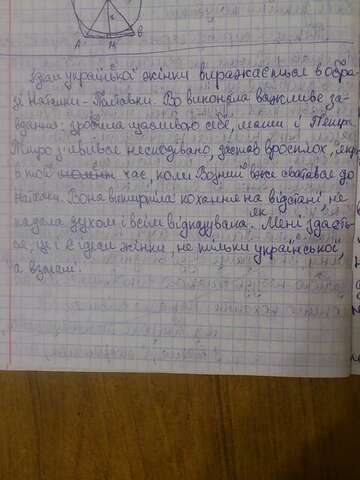 А М В
Ідал української жінки виражається в обра-
зі Наталки-Полтавки. Во виконала важливе за-
вдання: зробила щасливою себе, маму і Петра.
Петро з'явився несподівано, застав врасплох, якраз
в той час, коли Возний вже сватався до
Наталки. Вона витримала кохання на відстані, не
падала духом і всім відказувала. Мені здаєть-
як
ся, це і є ідеал жінки, не тільки української,
а взагалі.